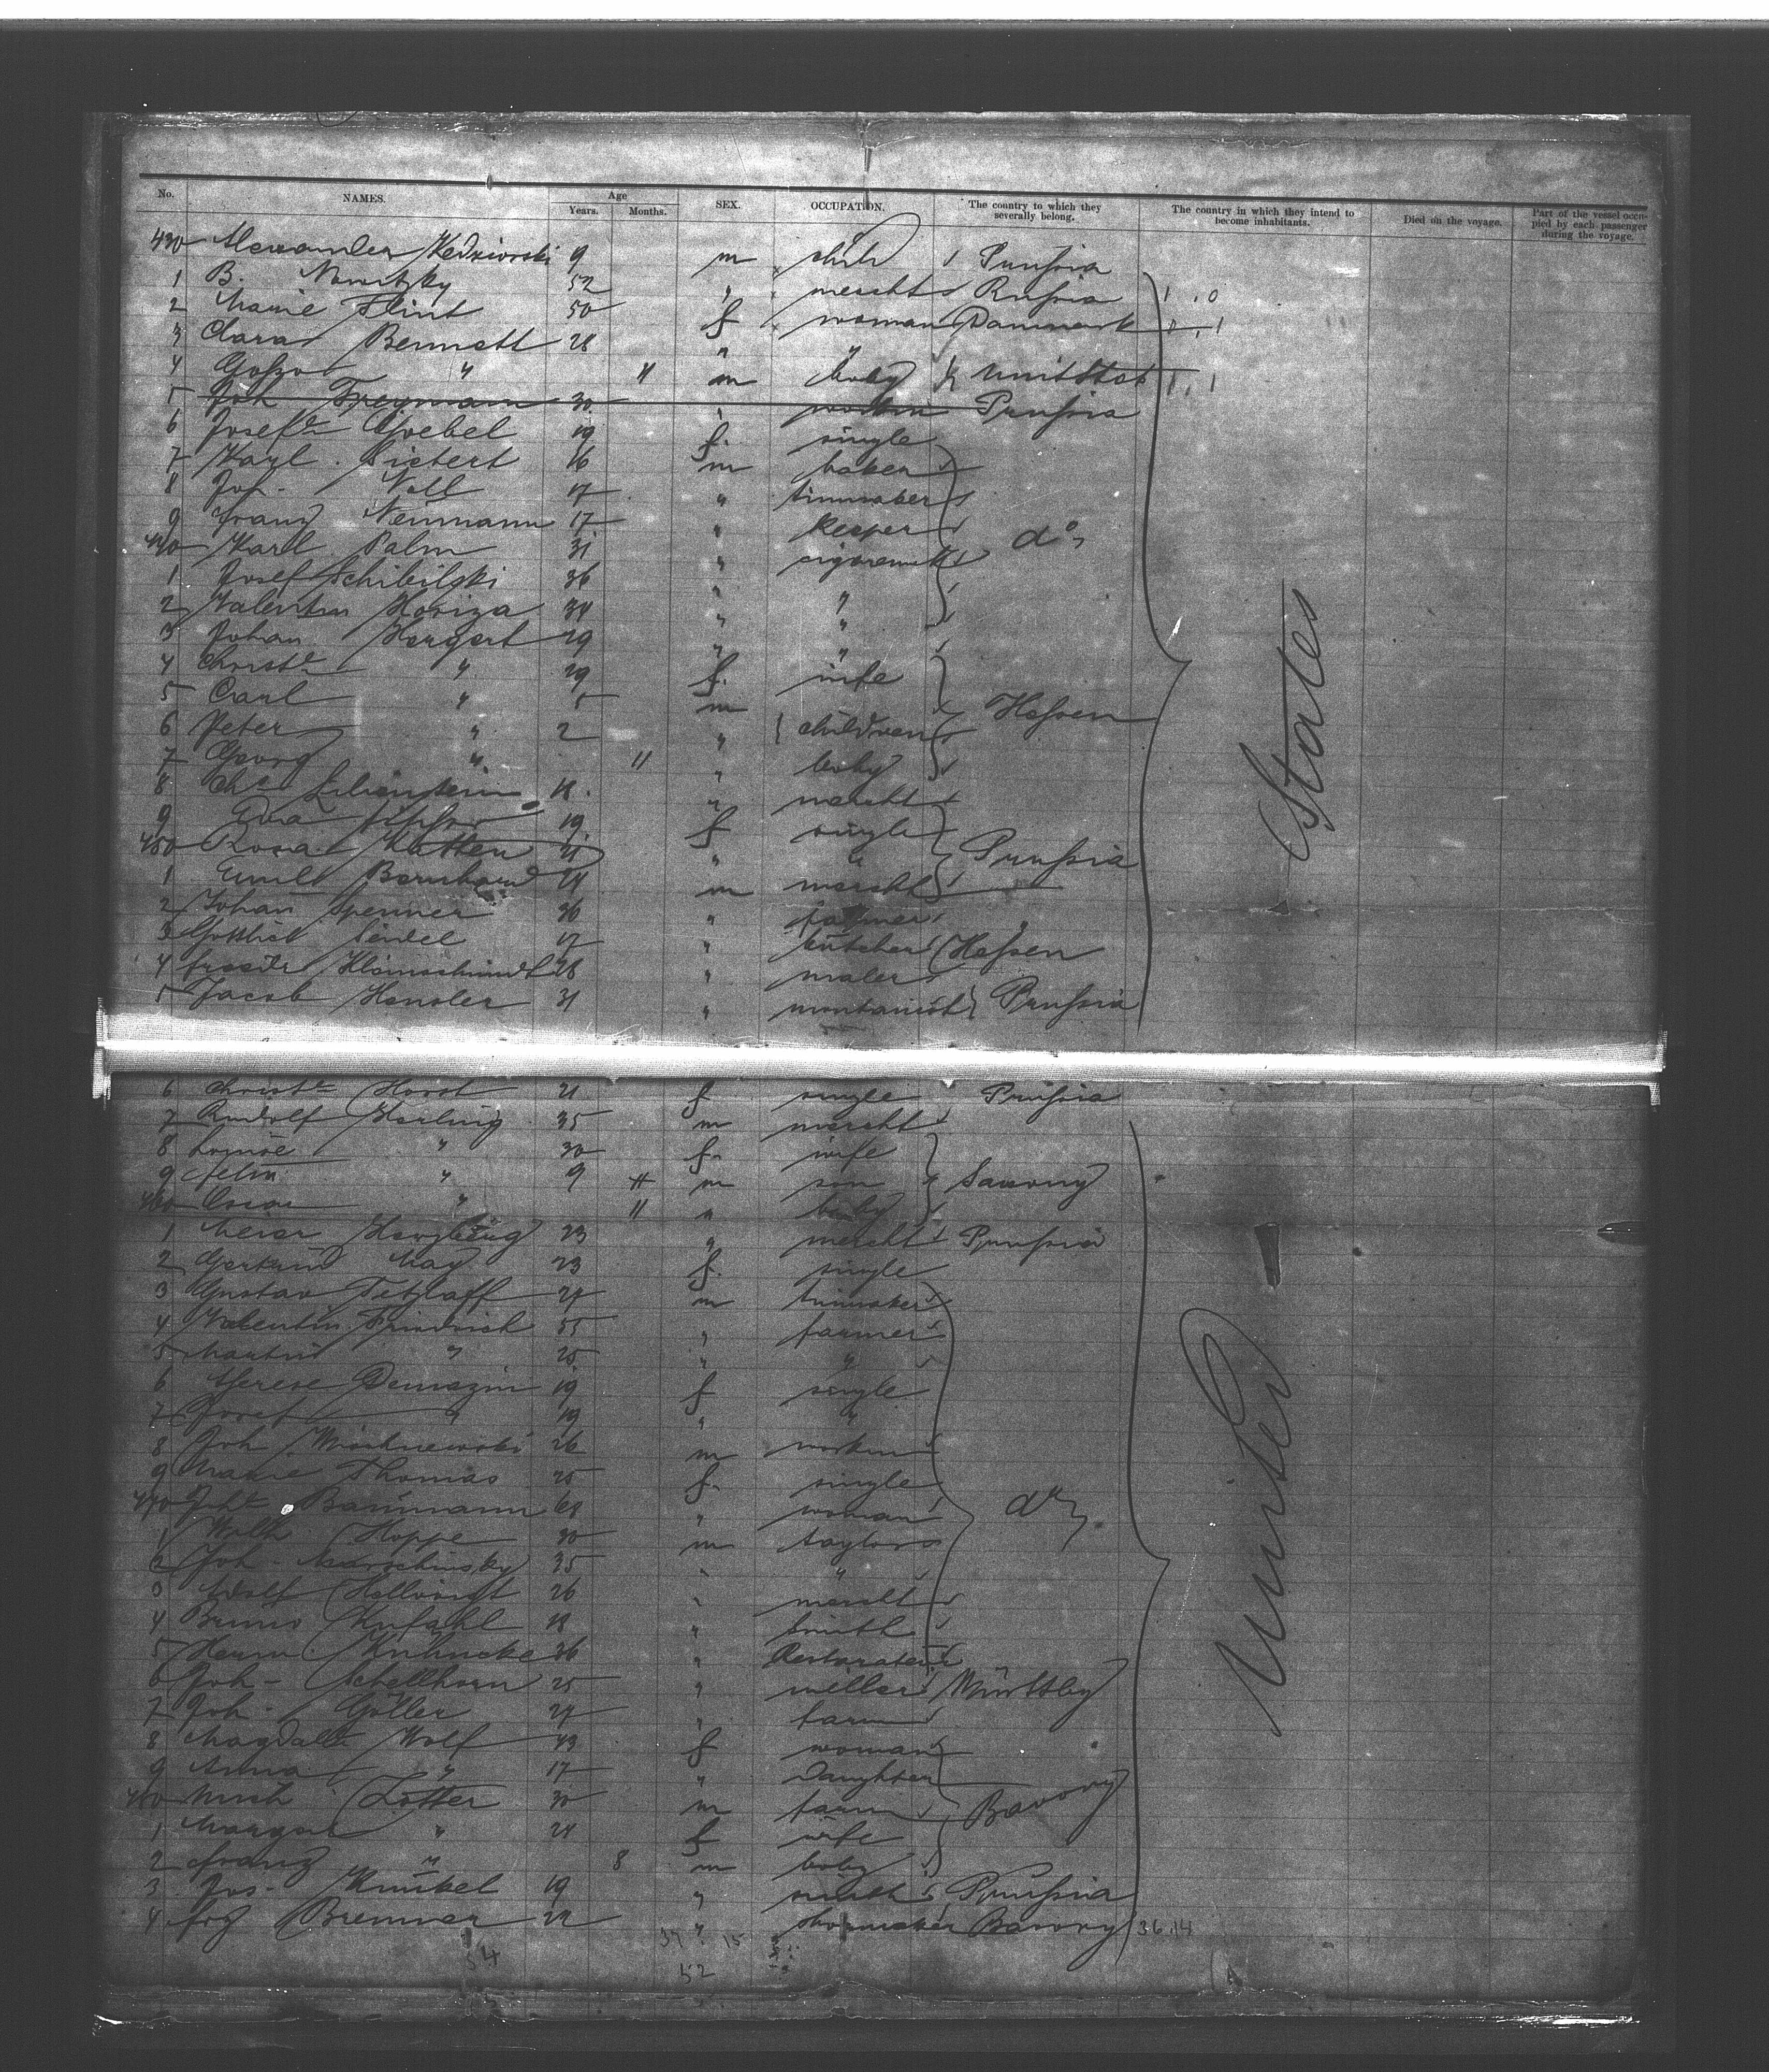 No. NAMES. Age Years. Months. SEX. OCCUPATION. The country to which they severally belong. The country in which they intend to become inhabitants. Died on the voyage. Part of the vessel occupied by each passenger during the voyage.
430 Alexander Kedziorski 9 m child Prussia
1 B. Nowitzky 52 " mercht Russia 1 , 0
2 Marie Flint 50 f woman Danmark 0 , 1
3 Clara Bennett 28 " "
4 " 11 m baby Unit Stat 1 , 1
5 Joh Freymann 30 " workm Prussia
6 Josefe Goebel 19 f. single
7 Karl Sietert 16 m baker
8 Joh. Noll 17 " tinmaker
9 Franz Neumann 17 " keeper do
440 Karl Palm 31 " cigaremak
1 Josef Schibilski 36 " "
2 Valentin Koriza 34 " "
3 Johan Hergert 29 " "
4 Christe " 29 f. wife
5 Carl " 5 m Hessen
6 Peter " 2 " children
7 Georg " 11 " baby
8 Chs Lilienstein 18 " mercht
9 Eva 19 f single
450 Rosa Katten 21 " " Prussia
1 Emil Bernhard 21 m mercht
2 Johan Spenner 36 " farmer "
3 Gottlieb Seidel 17 " butcher Hessen
4 Kleinschmidt 28 " maler
5 Jacob Hensler 31 " montanist Prussia
6 Christe Horst 21 f single Prussia
7 Rudolf Harling 35 m mercht
8 Louise " 30 f. wife
9 " 9 m son Saxony
460 Oscar " 11 " baby
1 Meier 23 " mercht Prussia
2 Gertrud May 23 f. single
3 Gustav Tetzlaff 27 m tinmaker
4 Valentin Friedrich 55 " farmer
5 Martin " 25 " "
6 Therese Demazin 19 f single
7 Josef " 19 " "
8 Joh Wischniewski 26 m workm
9 Marie Thomas 25 f. single
470 Johe Baumann 69 " woman do
1 Wilh Hoppe 30 m taylors
2 Joh. 35 " "
3 Adolf Hellwigt 26 " mercht
4 Bruno Kufahl 18 " smith
5 Herm Kuhncke 36 " Restorateur
6 Joh. Schellhorn 25 " miller Würtbg
7 Joh. Göller 27 " farm
8 Magdale Wolf 43 f woman
9 Anna " 17 " Daughter
480 Mich Lotter 30 m farm Bavory
1 Margar " 24 f wife
2 Franz " 8 m baby
3 Jos. Kunkel 19 " smith Prussia
4 Brenner 22 " shoemaker Bavory 36.14
37 . 15
54
52
United States